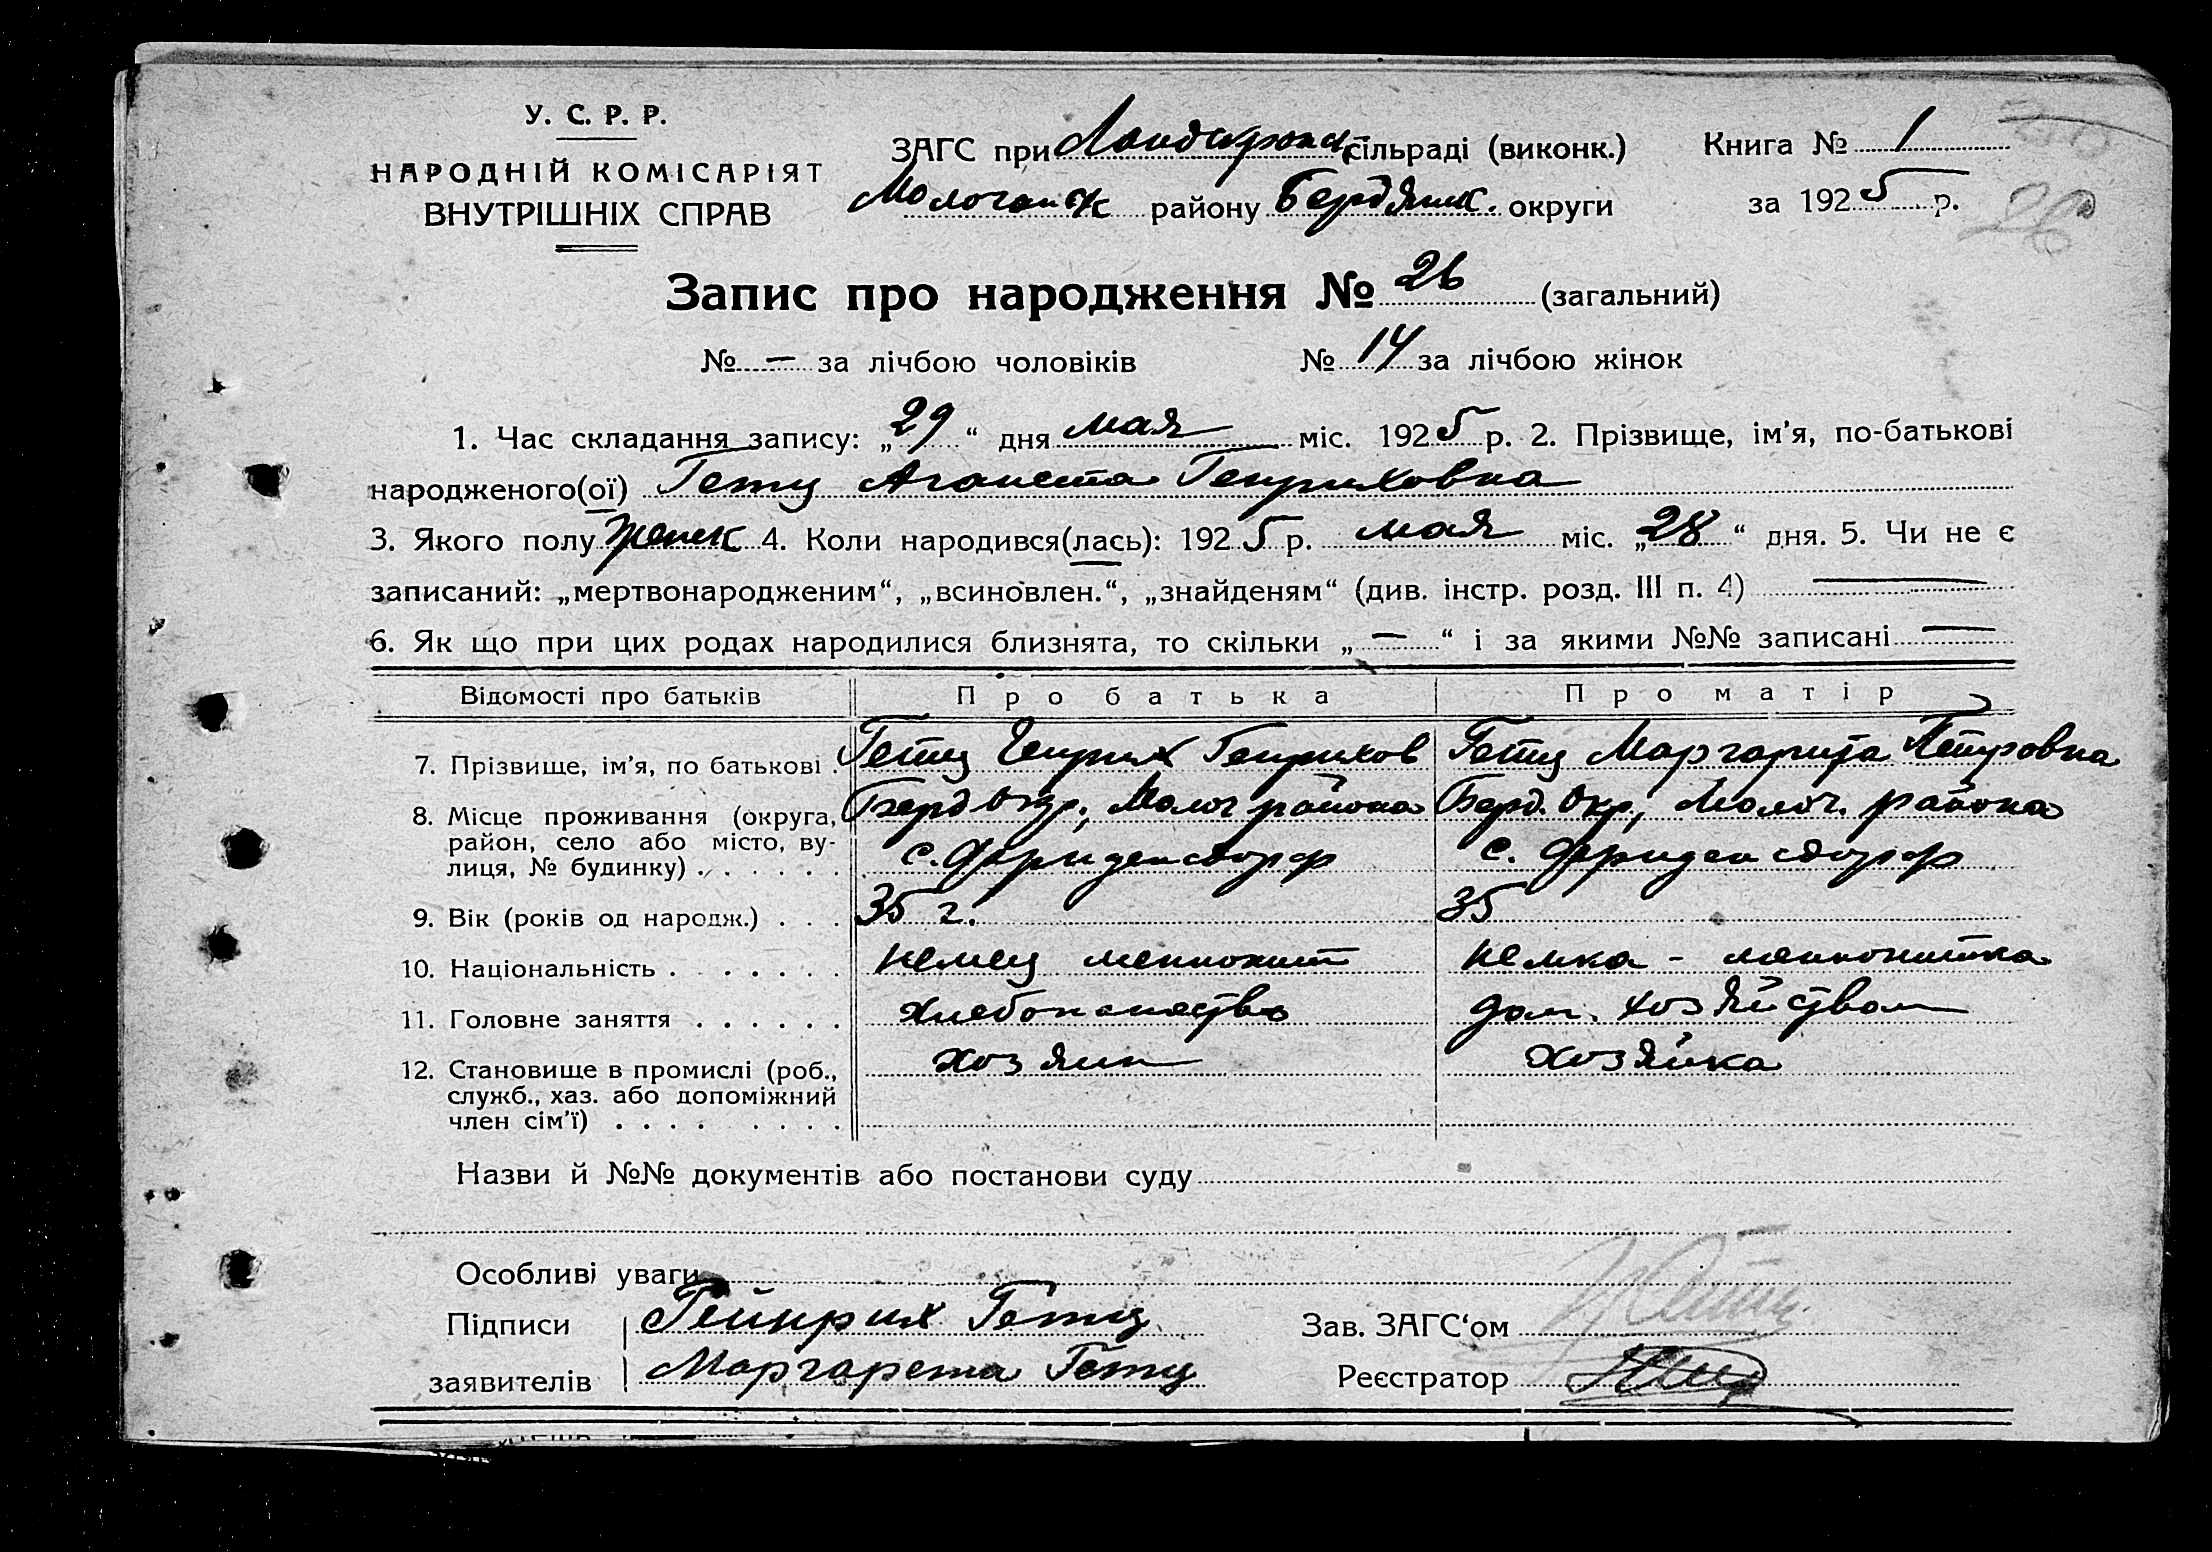 У. С. Р. Р.
НАРОДНІЙ КОМІСАРІЯТ
ВНУТРІШНІХ СПРАВ
ЗАГС при сільраді (виконк.)
Молочанск району Бердянск. округи
Книга № 1
за 1925 р.
26
Запис про народження № 26 (загальний)
№ — за лічбою чоловіків № 14 за лічбою жінок
1. Час складання запису: „29“ дня мая міс. 1925 р. 2. Прізвище, ім’я, по-батькові
народженого(ої) Гетц Аганета Генриховна
3. Якого полу женск 4. Коли народився(лась): 1925 р. мая міс. „28“ дня. 5. Чи не є
записаний: „мертвонародженим“, „всиновлен.“, „знайденям“ (див. інстр. розд. III п. 4) —
6. Як що при цих родах народилися близнята, то скільки „—“ і за якими №№ записані —
Відомості про батьків Про батька Про матір
7. Прізвище, ім’я, по батькові . Гетц Генрих Генрихов Гетц Маргарита Петровна
8. Місце проживання (округа, Берд окр., Молоч района Берд. Окр., Молоч. района
район, село або місто, ву-
лиця, № будинку) . . . . . . с. Фриденсдорф с. Фриденсдорф
9. Вік (років од народж.) . . . 35 г. 35
10. Національність . . . . . . . немец меннонит немка - меннонитка
11. Головне заняття . . . . . . дом. хозяйством
12. Становище в промислі (роб., хозяин хозяйка
служб., хаз. або допоміжний
член сім’ї) . . . . . . . .
Назви й №№ документів або постанови суду
Особливі уваги
Підписи Гейнрих Гетц Зав. ЗАГС‘ом
заявителів Маргарета Гетц Реєстратор